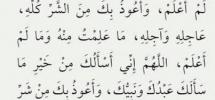 لَمْ أَعْلَمْ، وَأَعُوذُ بِكَ مِنَ الشَّرِّ كُلِّهِ،
عَاجِلِهِ وَآجِلِهِ، مَا عَلِمْتُ مِنْهُ وَمَا لَمْ
أَعْلَمْ، اللَّهُمَّ إِنِّي أَسْأَلُكَ مِنْ خَيْرِ مَا
سَأَلَكَ عَبْدُكَ وَنَبِيُّكَ، وَأَعُوذُ بِكَ مِنْ شَرِّ